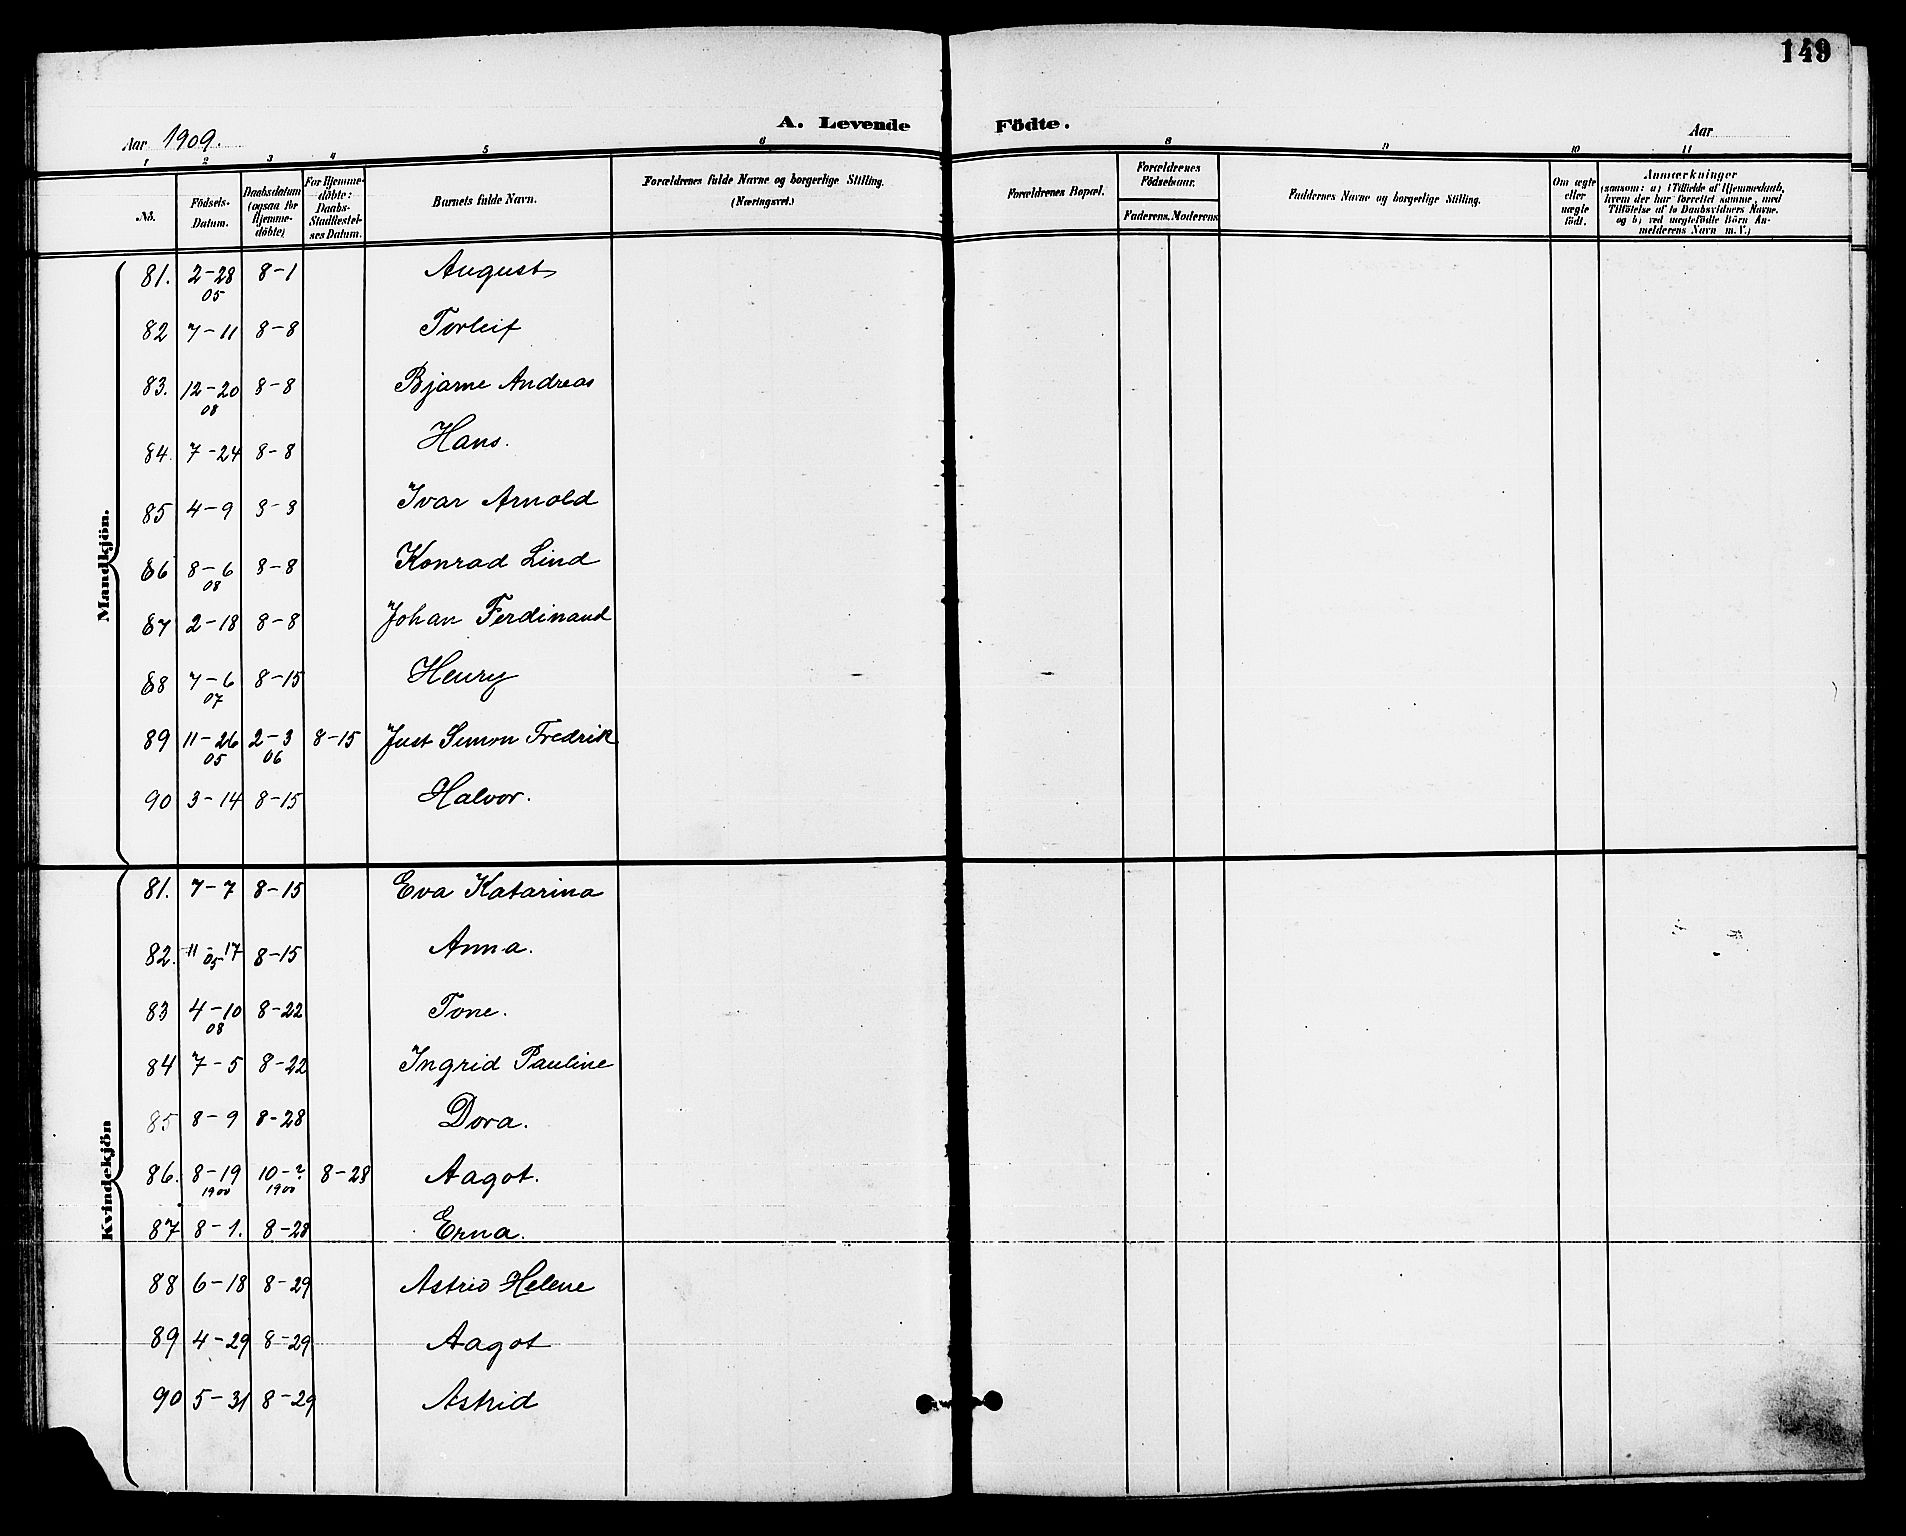 149
A. Levende Födte.
Aar 1909. Aar
1 2 3 4 5 6 8 9 10 11
No. Födsels-Datum. Daabsdatum (ogsaa for Hjemme-döbte) For Hjemme-döbte: Daabs-Stadfæstel-ses Datum. Barnets fulde Navn. Forældrenes fulde Navne og borgerlige Stilling. (Næringsvei.) Forældrenes Bopæl. Forældrenes Födselsaar. Faderens. Moderens Faddernes Navne og borgerlige Stilling. Om ægte eller uægte födt. Anmærkninger (saasom: a) i Tilfælde af Hjemmedaab, hvem der har forrettet samme, med Tilföielse af to Daabsvidners Navne. og b) ved uægtefödte Börn An-melderens Navn m. V.)
Mandkjön.
81. 2-28 05 8-1 August
82 7-11 8-8 Torleif
83. 12-20 08 8-8 Bjarne Andreas
84. 7-24 8-8 Hans.
85 4-9 8-8 Ivar Arnold
86 8-6 08 8-8 Konrad Lind
87 2-18 8-8 Johan Ferdinand
88 7-6 07 8-15 Henry
89 11-26 05 2-3 06 8-15 Just Simon Fredrik
90 3-14 8-15 Halvor.
Kvindekjön
81. 7-7 8-15 Eva Katarina
82. 11-17 05 8-15 Anna.
83 4-10 08 8-22 Tone.
84 7-5 8-22 Ingrid Pauline
85 8-9 8-28 Dora.
86. 8-19 1900 10-? 1900 8-28 Aagot.
87 8-1. 8-28 Erna.
88 6-18 8-29 Astrid Helene
89 4-29 8-29 Aagot
90 5-31 8-29 Astrid